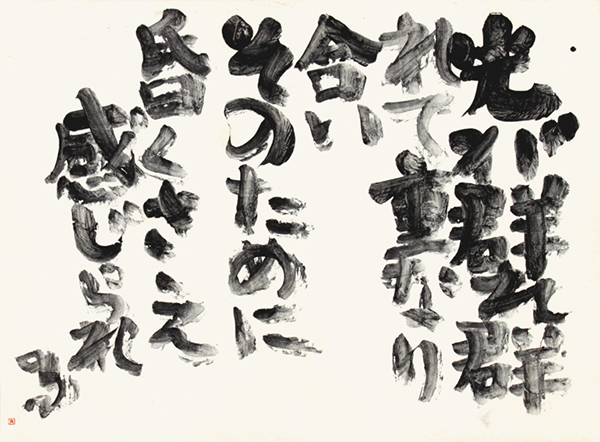 光が群れ群
れて重なり
合い
そのために
昏くさえ
感じられ
る